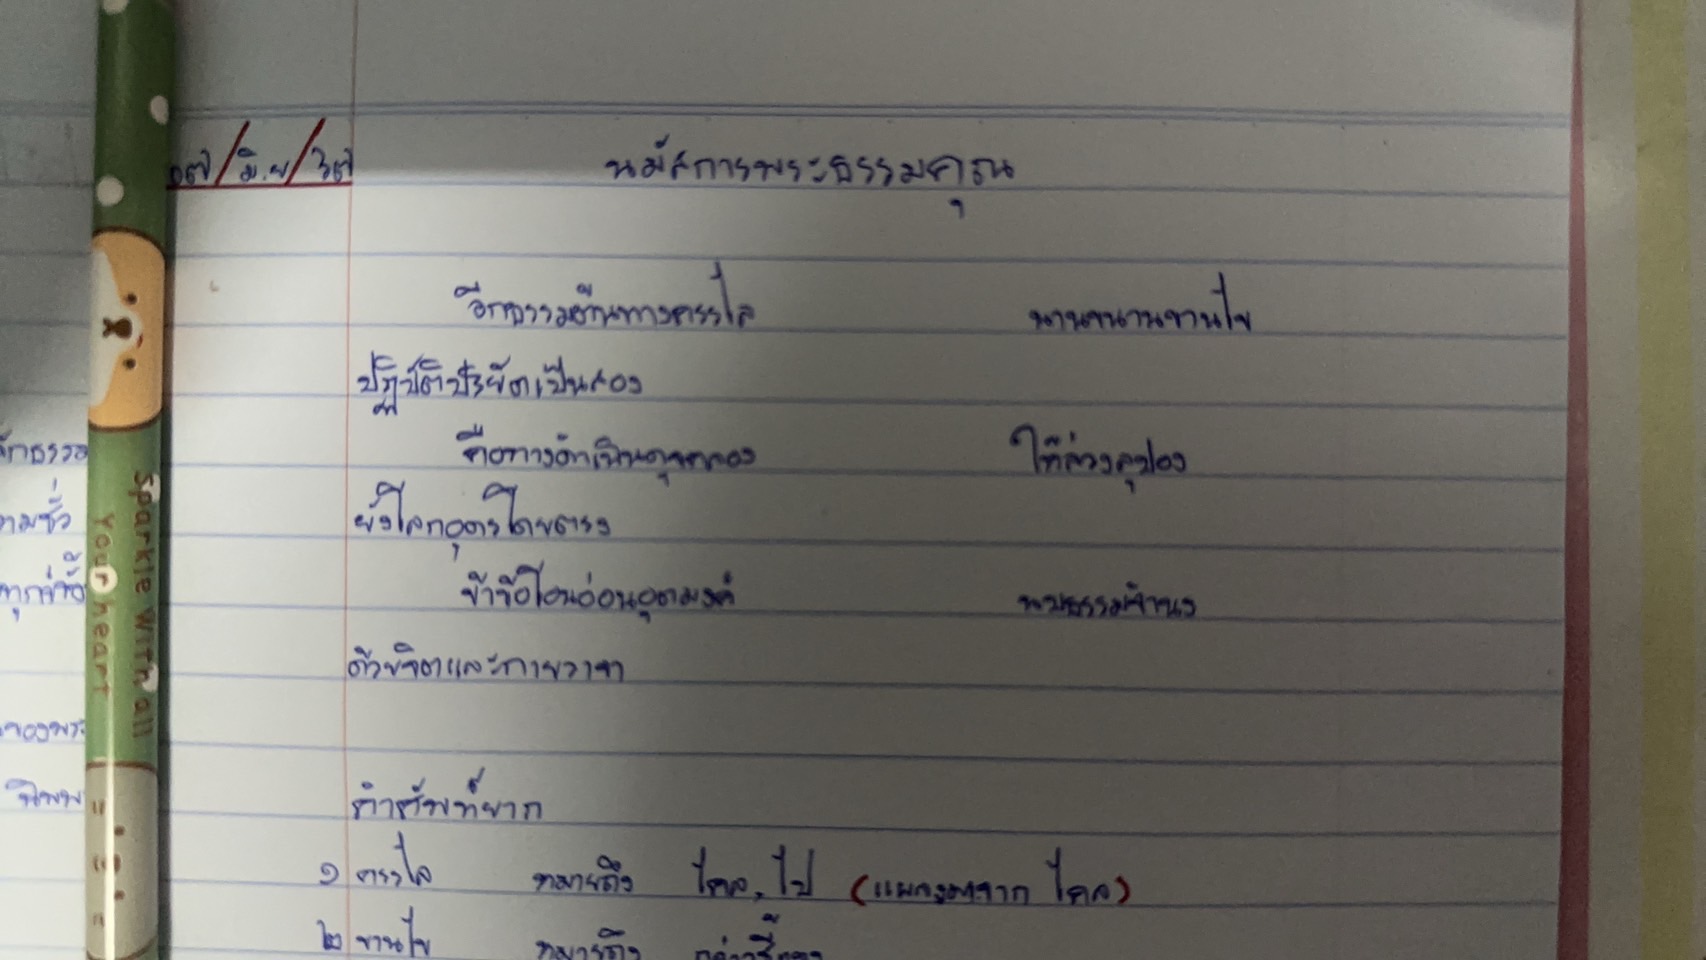 ๑๗/มิ.ย/๖๗
นมัสการพระธรรมคุณ
อีกธรรมต้นทางครรไล นามขนานขานไข
ปฏิบัติปริยัตเป็นสอง
คือทางดำเนินดุจคลอง ให้ล่วงลุปอง
ยังโลกอุดรโดยตรง
ข้าขอโอนอ่อนอุตมงค์ นบธรรมจำนง
ด้วยจิตและกายวาจา
คำศัพท์ยาก
๑ ครรไล หมายถึง ไคล, ไป (แผลงมาจาก ไคล)
๒ ขานไข หมายถึง
ทามชั่ว
ของพระ
นิพพ
Sparkle with all
Your heart